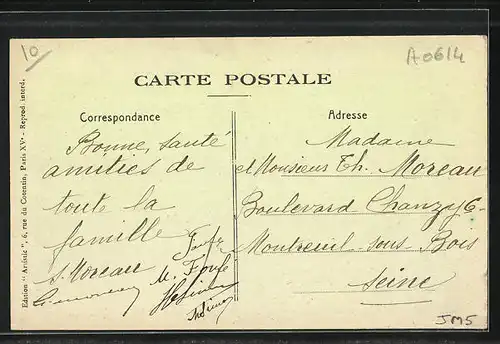 10
A0614
CARTE POSTALE
Correspondance
Bonne santé
amitiés de
toute la
famille
S. Moreau
M.
Adresse
Madame
et Monsieur Th. Moreau
Boulevard Chanzy 6
Montreuil-sous-Bois
Seine
Edition "Artistic", 6, rue du Cotentin, Paris XVe - Reprod. interd.
JM5